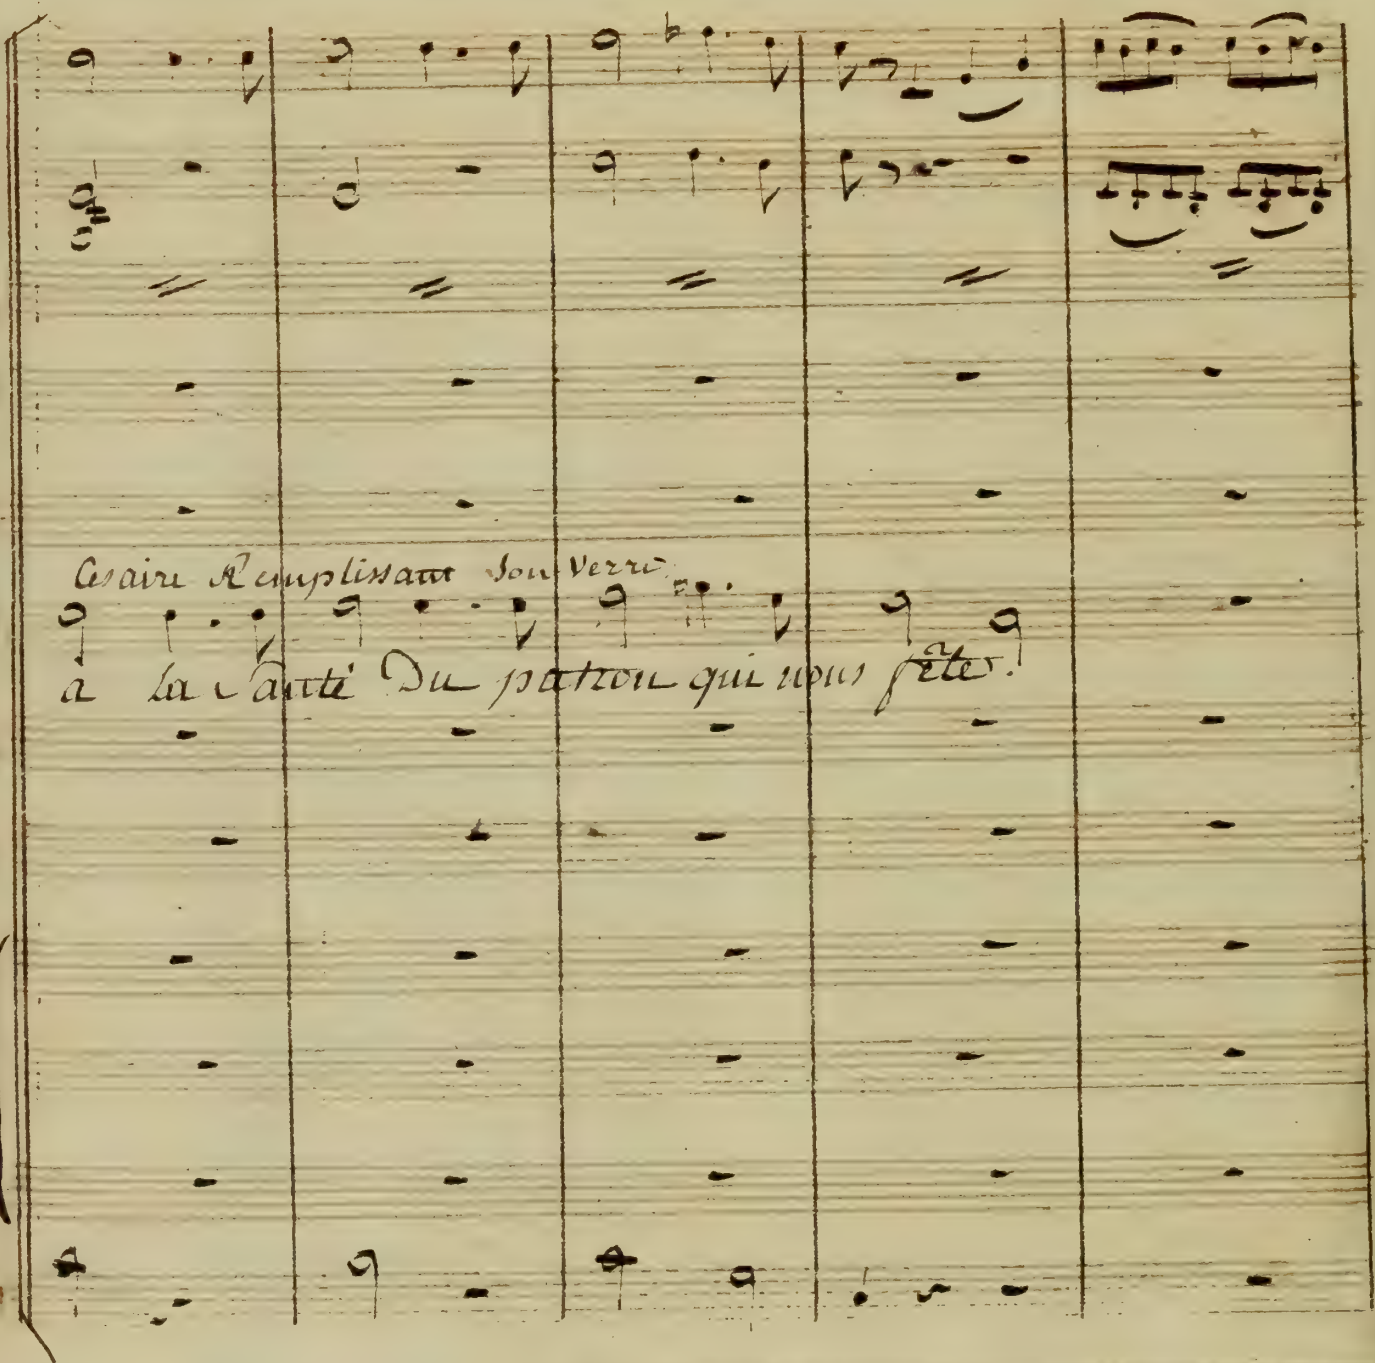 Cesaire Remplissant Son Verre.
a la Santé Du patron qui nous fête.